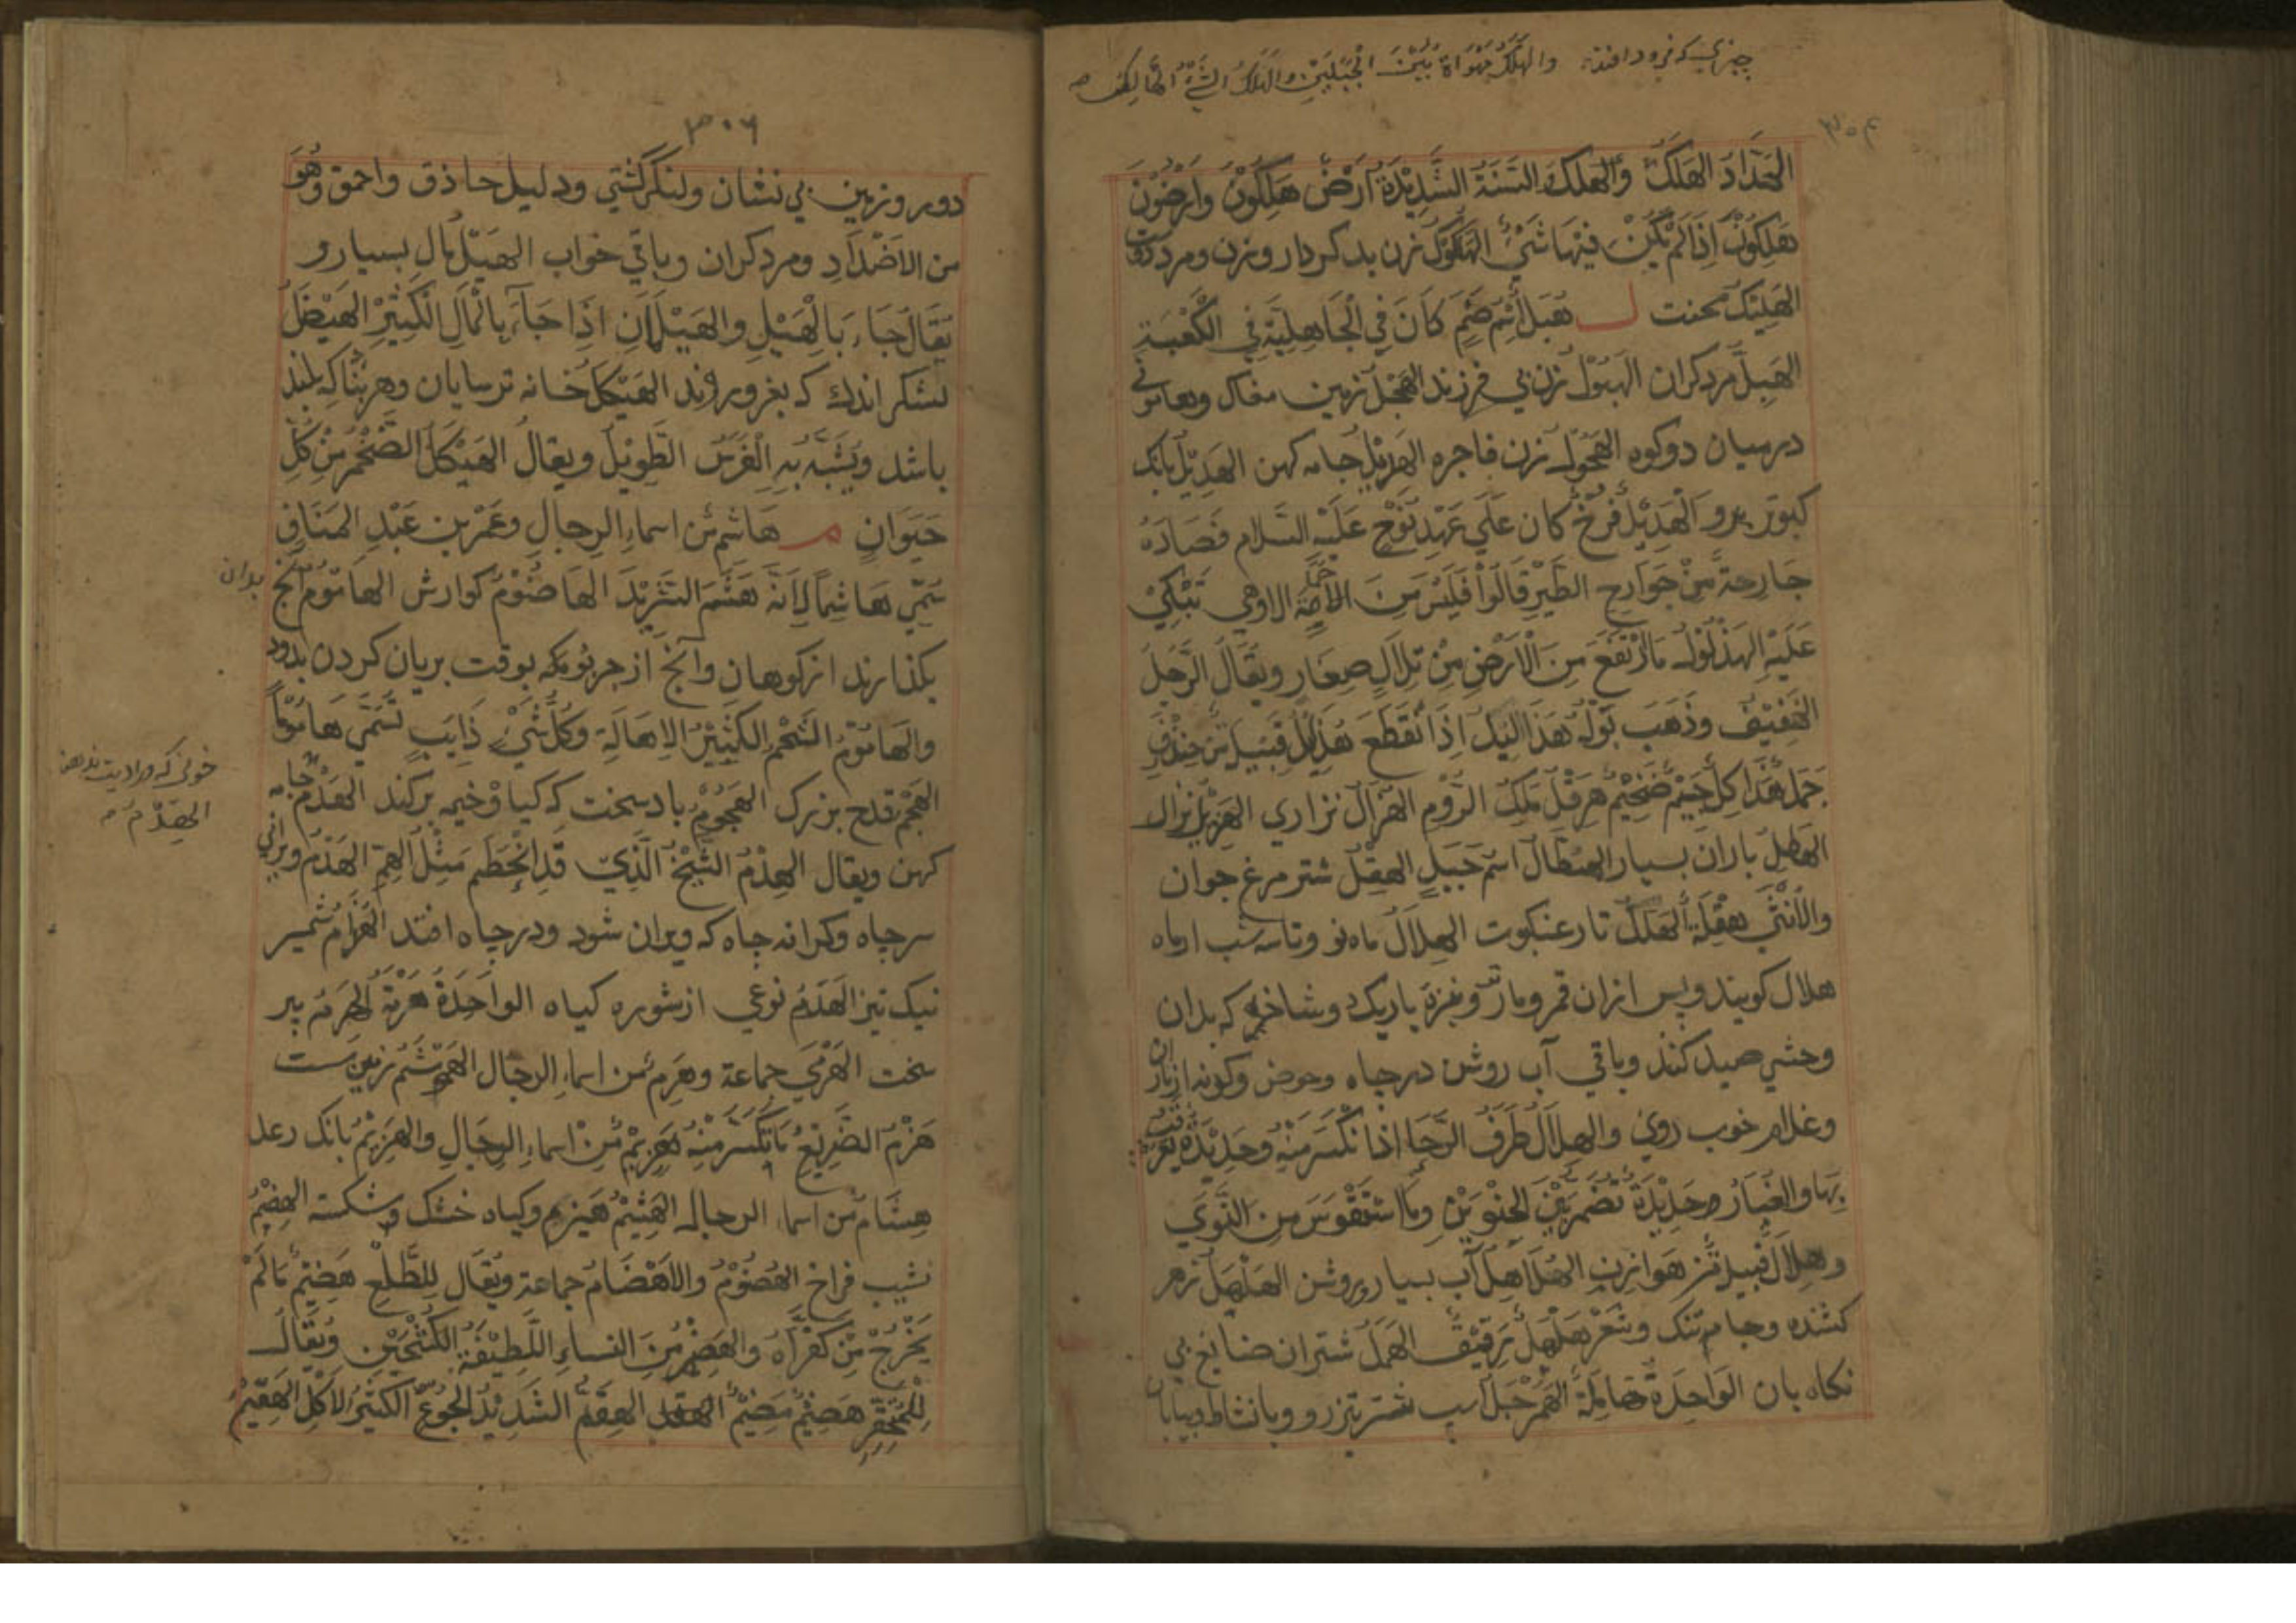 چیزی که فرود افتد والهَلَكُ مَهْوَاةٌ بَيْنَ الْجَبَلَيْنِ والهَلَكُ الشَّيْءُ الهَالِكُ
الهَلَكُ والهَلَكُ السَّنَةُ الشَّدِيْدَةُ اَرْضٌ هَلِكُوْنٌ وَاَرْضُوْنَ
هَلِكُوْنٌ اِذَا لَمْ يَكُنْ فِيْهَا شَيْءٌ الهَلُوْكُ زن بد کردار وزن ومرد
الهَلِيْكُ سخت ل هُبَلُ اسْمُ صَنَمٍ كَانَ فِي الْجَاهِلِيَّةِ فِي الْكَعْبَةِ
الهِبِلُّ مرد کران الهَبُوْلُ زن بی فرزند الهَجْلُ زمین مغاک وهامونی
درمیان دو کوه الهَجُوْلُ زن فاجره الهِدْمِلُ جامه کهن الهَدِيْلُ بانک
کبوتر برو الْهَدِيْلُ فَرْخٌ كان عَلَي عَهْدِ نُوْحٍ عَلَيْهِ السَّلام فَصَادَهُ
جَارِحَةٌ مِنْ جَوَارِحِ الطَّيْرِ قَالُوْا فَلَيْسَ مِنَ حَمَامَةٍ الا وهي تَبْكِيْ
عَلَيْهِ الهُذْلُوْلُ مَا ارْتَفَعَ مِنَ الْاَرْضِ مِنْ تِلَالٍ صِغَارٍ ويُقَالُ الرَّجُلُ
الخَفِيْفُ وذَهَبَ بَوْلُهُ هَذَالِيْلَ اِذَا انْقَطَعَ هُذَيْلٌ قَبِيْلَةٌ مِنْ خِنْدِفَ
ضَخِيْمٌ هِرَقْلُ مَلِكُ الرُّوْمِ الهُزَالُ نزاری الهَزِيْلُ نزار
الهَطِلُ باران بسیار الهَطَّالُ اسْمُ جَبَلٍ الهِقْلُ شتر مرغ جوان
والاُنْثٰي هِقْلَةٌ الهَلَلُ تار عنکبوت الهِلَالُ ماه نو وتا سه شب از ماه
هلال کویند وپس ازان قمر ومار نر ونیزه باریک دو شاخه که بدان
وحشی صید کنند وباقی آب روشن در چاه وحوض وکونه از زنان
وغلام خوب روی والهِلَالُ طَرَفُ الرَّحَا اذا انْكَسَرَ مِنْهُ وحَدِيْدَةٌ يُعَرْقَبُ
بِهَا والغُبَارُ وحَدِيْدَةٌ تَضُمُّ بَيْنَ الحِنْوَيْنِ ومَا اسْتَقْوَسَ مِنَ النُّوْيِ
وهِلَالٌ قَبِيْلَةٌ مِنْ هَوَازِنَ الهُلَاهِلُ آب بسیار وروشن الهَلْهَلُ زهر
کشنده وجامه تنک وشِعْرٌ هَلْهَلٌ رَقِيْقٌ الهَمَلُ شتران ضایع بی
نکاه بان الواحِدَةُ هَامِلَةٌ الهَمَرْجَلُ اسب وشتر تیز رو وبا نشاط وبیابان
٣٠٦
دور وزمین بی نشان ولنکر کشتی ودلیل حاذق واحمق وَهُوَ
من الاَضْدَادِ ومرد کران وباقی خواب الهَيْلُ مال بسیار و
يُقَالُ جَاءَ بَالْهَيْلِ والهَيْلَمَانِ اِذَا جَآءَ بِالْمَالِ الْكَثِيْرِ الهَيْضَلُ
لشکر اندک که بغزو روند الهَيْكَلُ خانه ترسایان وهر بنا که بلند
باشد ويُشَبَّهُ بِهِ الْفَرَسُ الطَّوِيْلُ ويقالُ الهَيْكَلُ الضَّخْمُ مِنْ كُلِّ
حَيَوَانٍ م هَاشِمٌ مِنْ اسماءِ الرجالِ وعَمْرُ بن عَبْدِ المَنَافِ
سُمِّيَ هَاشِمًا لِاَنَّهُ هَشَمَ الثَّرِيْدَ الهَاضُوْمُ کوارش الهَامُوْمُ آنچ بدان
بکدازند از کوهان وآنچ از چربو که بوقت بریان کردن بدود
والهَامُوْمُ الشَّحْمُ الكَثِيْرُ الاِهَالَةِ وكُلُّ شَيْءٍ ذَايِبٍ يُسَمَّي هَامُوْمًا
الهَجْمُ قدح بزرک الهَجُوْمُ باد سخت که کیا وخیمه برکند الهِدْمُ جامه
کهن ويقال الهِدْمُ الشَّيْخُ الَّذِيْ قَدِ انْحَطَمَ مِثْلُ الهِمِّ الهَدْمُ ویرانی
سر چاه وکرانه چاه که ویران شود ودر چاه افتد الهُذَامُ شمشیر
نیک تیز الهَرْمُ نوعی از شوره کیاه الواحِدَةُ هَرْمَةٌ الهَرِمُ پیر
سخت الهَرْمَي جماعة وهَرِمٌ مِن اسماء الرجال زمین ست
هَزْمُ الضَّرِيْعِ مَا تَكَسَّرَ مِنْهُ هَزِيْمٌ مِنْ اسماءِ الرِجَالِ والهَزِيْمُ بانک رعد
هِشَامٌ مِنْ اسماء الرجال الهَشِيْمُ هیزم وکیاه خشک وشکسته الهِضْمُ
نشیب فراخ الهُضُوْمُ والاَهْضَامُ جماعة ويُقَال لِلطَّلْعِ هَضِيْمٌ مَا لَمْ
يَخْرُجْ مِنْ كُفُرَّاهُ والهَضِيْمُ مِنَ النساءِ اللَّطِيْفَةُ الكَشْحَيْنِ ويُقَالُ
هَضِيْمٌ الهِقَمُّ الشَّدِيْدُ الجُوْعِ الكَثِيْرُ الاَكْلِ الهَقِمُ
خونی که
الهَدَمُ